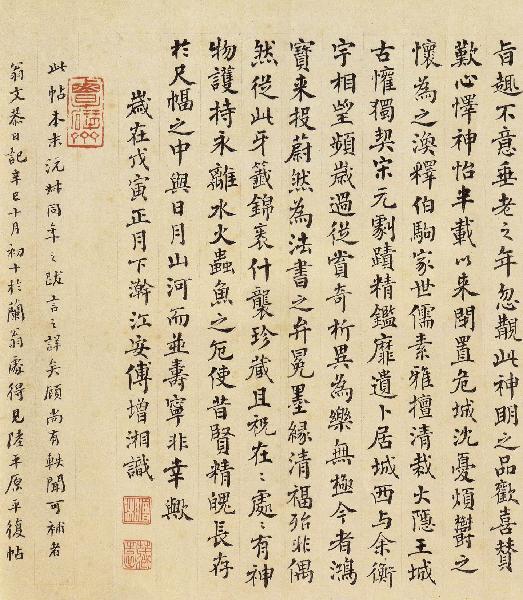 旨趣不意垂老之年忽覯此神明之品歡喜贊
歎心懌神怡半載以來閉置危城沈憂煩鬱之
懷為之渙釋伯駒家世儒素雅擅清裁大隱王城
古懽獨契宋元劇蹟精鑑靡遺卜居城西与余衡
宇相望頻歲過從賞奇析異為樂無極今者鴻
寶來投蔚然為法書之弁冕墨緣清福殆非偶
然從此牙籤錦裹什襲珍藏且祝在:處:有神
物護持永離水火蟲魚之厄使昔賢精魄長存
於尺幅之中與日月山河而並壽寧非幸歟
歲在戊寅正月下澣江安傅增湘識
此帖本末沅叔同年之跋言之詳矣顧尚有軼聞可補者
翁文恭日記辛巳十月初十於蘭翁處得見陸平原平復帖